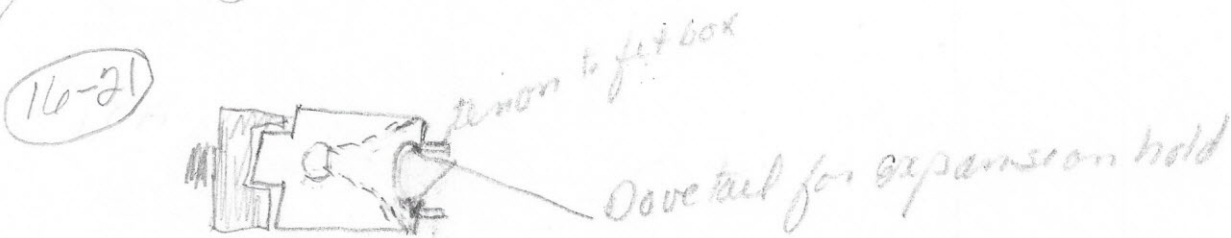 16-21
tenon to fit box
Dovetail for expansion hold